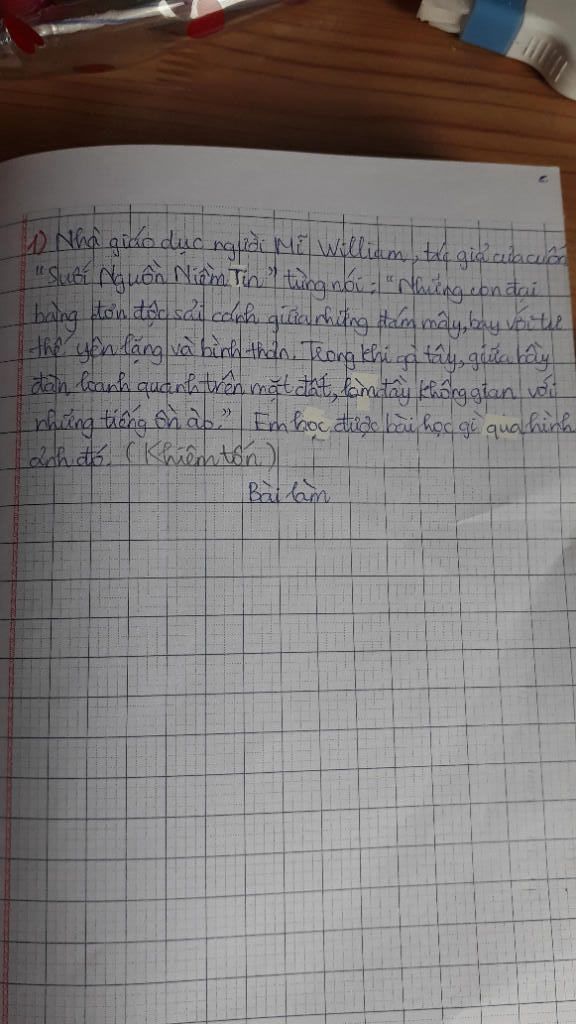 1) Nhà giáo dục người Mĩ William, tác giả của cuốn
"Suối Nguồn Niềm Tin" từng nói: "Những con đại
bàng đơn độc sải cánh giữa những đám mây, bay với tư
thế yên lặng và bình thản. Trong khi gà tây, giữa bầy
đàn loanh quanh trên mặt đất, làm đầy không gian với
những tiếng ồn ào." Em học được bài học gì qua hình
ảnh đó. (Khiêm tốn)
Bài làm